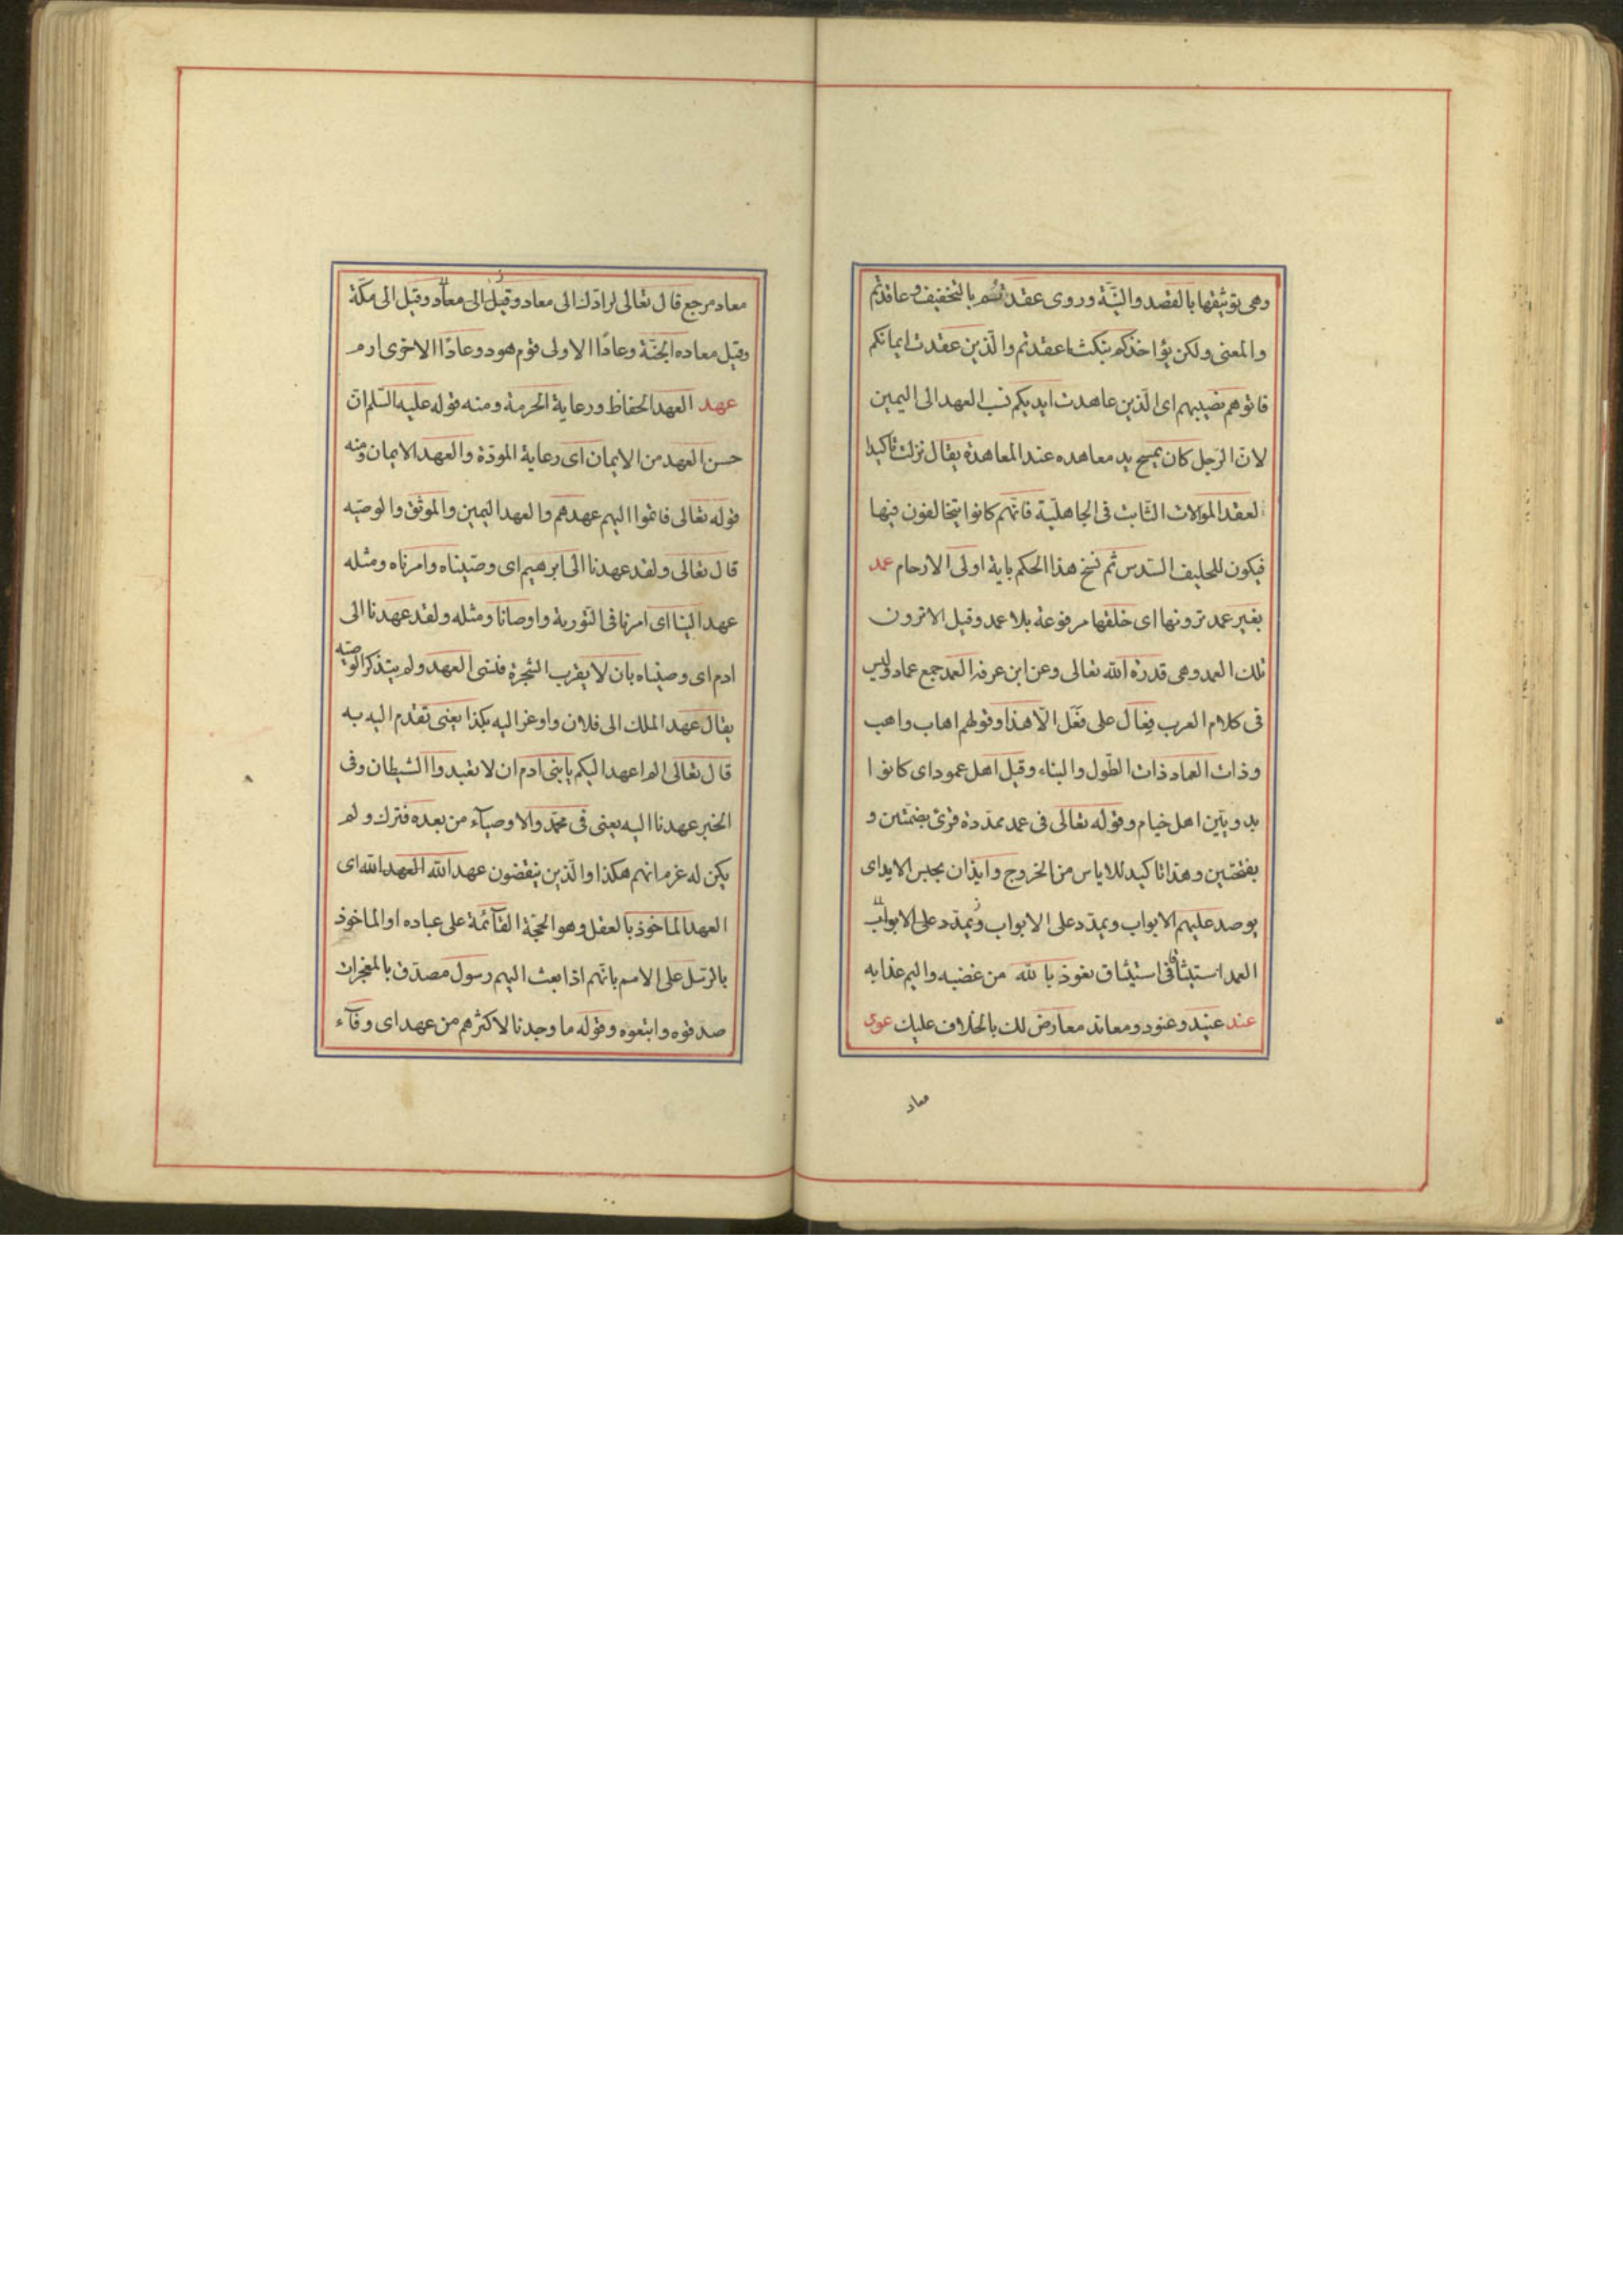 وهى توثيقها بالقصد والنيّة وروى عقدتم بالتخفيف وعاقدتم
والمعنى ولكن يؤاخذكم بنكث ما عقدتم والّذين عقدت ايمانكم
فاتوهم نصيبهم اى الّذين عاهدت ايديكم نسب العهد الى اليمين
لانّ الرّجل كان يمسح يد معاهده عند المعاهدة يقال نزلت تاكيدا
لعقد الموالات الثّابت فى الجاهليّة فانّهم كانوا يتحالفون فيها
فيكون للحليف السّدس ثم نسخ هذا الحكم باية اولى الارحام عمد
بغير عمد ترونها اى خلقها مرفوعة بلا عمد وقيل لا ترون
تلك العمد وهى قدرة الله تعالى وعن ابن عرفه العمد جمع عماد وليس
فى كلام العرب فِعَال على فَعَل الّا هذا وقولهم اهاب واهب
وذات العماد ذات الطّول والبناء وقيل اهل عمود اى كانوا
بدويّين اهل خيام وقوله تعالى فى عمد ممدّدة قرئ بضمّتين و
بفتحتين وهذا تاكيد للاياس من الخروج وايذان بحبس الابد اى
يوصد عليهم الابواب ويمدّد على الابواب ويمدّد على الابواب
العمد استيثاقا فى استيثاق نعوذ بالله من غضبه واليم عذابه
عند عنيد وعنود ومعاند معارض لك بالخلاف عليك عود
معاد
معاد مرجع قال تعالى لرادّك الى معاد وقيل الى معاد وقيل الى مكّة
وقيل معاده الجنّة وعادًا الاولى قوم هود وعادًا الاخرى ارم
عهد العهد الحفاظ ورعاية الحرمة ومنه قوله عليه السّلم انّ
حسن العهد من الايمان اى رعاية المودّة والعهد الامان ومنه
قوله تعالى فاتموا اليهم عهدهم والعهد اليمين والموثق والوصيّه
قال تعالى ولقد عهدنا الى ابرهيم اى وصّيناه وامرناه ومثله
عهد الينا اى امرنا فى التّورية واوصانا ومثله ولقد عهدنا الى
ادم اى وصيّناه بان لا يقرب الشّجرة فنسى العهد ولم يتذكر الوصيّه
يقال عهد الملك الى فلان واوعز اليه بكذا يعنى تقدم اليه به
قال تعالى الم اعهد اليكم يابنى ادم ان لا تعبدوا الشيطان وفى
الخبر عهدنا اليه يعنى فى محمّد والاوصيآء من بعده فترك ولم
يكن له عزم انهم هكذا والّذين ينقضون عهد الله العهد الله اى
العهد الماخوذ بالعقل وهو الحجّة القآئمة على عباده او الماخوذ
بالرّسل على الامم بانّهم اذا بعث اليهم رسول مصدّق بالمعجزات
صدقوه واتبعوه وقوله ما وجدنا لاكثرهم من عهد اى وفآء